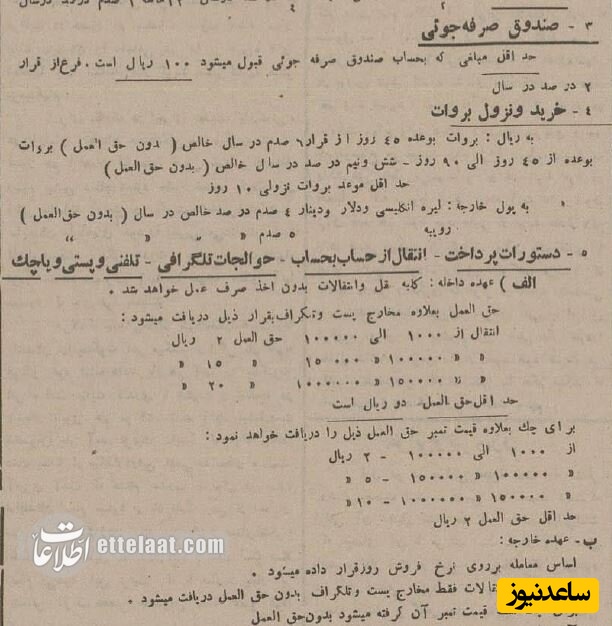 ۳ - صندوق صرفه جوئی
حد اقل مبلغی که بحساب صندوق صرفه جوئی قبول میشود ۱۰۰ ریال است . فرع از قرار
۲ در صد در سال
۴ - خرید و نزول بروات
به ریال : بروات بوعده ۴۵ روز از قرار ۶ صدم در سال خالص ( بدون حق العمل ) بروات
بوعده از ۴۵ روز الی ۹۰ روز - شش ونیم در صد در سال خالص ( بدون حق العمل )
حد اقل موعد بروات نزولی ۱۰ روز
به پول خارجه : لیره انگلیسی ودلار ودینار ٤ صدم در صد خالص در سال ( بدون حق العمل )
روپیه ۵ صدم » » »
۵ - دستورات پرداخت - انتقال از حساب بحساب - حوالجات تلگرافی - تلفنی و پستی و یا چك
الف ) عهده داخله : کلیه نقل وانتقالات بدون اخذ صرف عمل خواهد شد .
حق العمل بعلاوه مخارج پست وتلگراف بقرار ذیل دریافت میشود :
انتقال از ۱۰۰۰ الی ۱۰۰۰۰۰ حق العمل ۲ ریال
» » ۱۰۰۰۰۰ » ۱۵۰۰۰۰ » ۱۵ »
» » ۱۵۰۰۰۰ » ۱۰۰۰۰۰۰ » ۲۰ »
حد اقل حق العمل دو ریال است
برای چك بعلاوه قیمت تمبر حق العمل ذیل را دریافت خواهد نمود :
از ۱۰۰۰ الی ۱۰۰۰۰۰ - ۲ ریال
» ۱۰۰۰۰۰ » ۱۵۰۰۰۰ - ۵ »
» ۱۵۰۰۰۰ » ۱۰۰۰۰۰۰ - ۱۰ »
حد اقل حق العمل ۲ ریال
ب - عهده خارجه :
اساس معامله برروی نرخ فروش روز قرار داده میشود .
فقط مخارج پست وتلگراف بدون حق العمل دریافت میشود .
قیمت تمبر آن گرفته میشود بدون حق العمل
اطلاعات ettelaat.com
ساعدنیوز